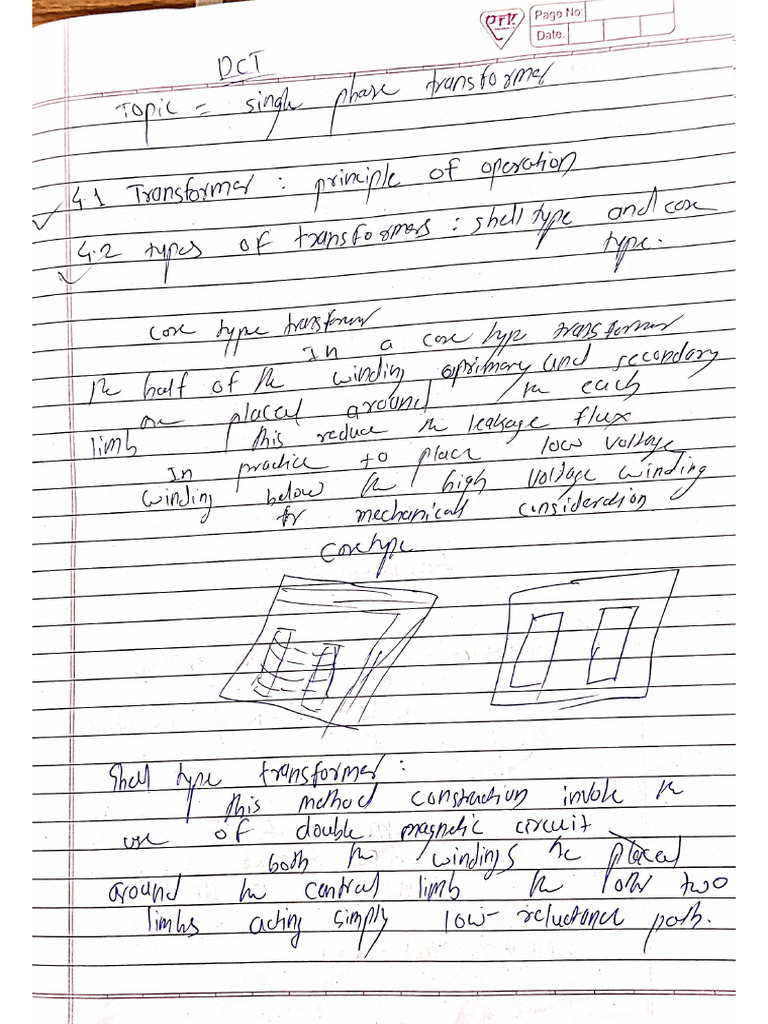 PTK
Page No:
Date.
DCT
Topic = single phase transformer
4.1 Transformer : principle of operation
4.2 types of transformers : shell type and core
type.
core type transformer
In a core type transformer
the half of the winding primary and secondary
are placed around the each
limb this reduce the leakage flux
In practice to place low voltage
winding below the high voltage winding
for mechanical consideration
Core type
Shell type transformer :
This method construction involve the
use of double magnetic circuit
both the windings placed
around the central limb the other two
limbs acting simply low-reluctance path.